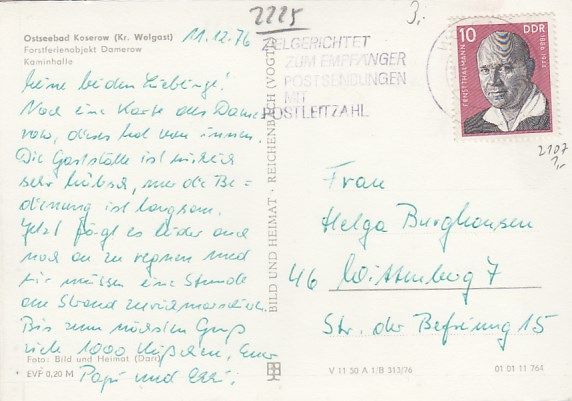 2225
3,-
Ostseebad Koserow (Kr. Wolgast)
Forstferienobjekt Damerow
Kaminhalle
11.12.76
Meine beiden Lieblinge!
Noch eine Karte des Dame-
row, dieses Mal von innen.
Die Gaststätte ist wirklich
sehr hübsch, nur die Be-
dienung ist langsam.
Jetzt fängt es leider auch
noch an zu regnen und
wir müssen eine Stunde
am Strand zurückmarschieren.
Bis zum nächsten Gruß
viele 1000 Küßchen, Euer
Papi und
Foto: Bild und Heimat (Darr)
* EVP 0,20 M
BILD UND HEIMAT · REICHENBACH (VOGTL)
ZIELGERICHTET
ZUM EMPFÄNGER
POSTSENDUNGEN
MIT
POSTLEITZAHL
10 DDR
ERNST THÄLMANN
2107
1,-
Frau
Helga Burghausen
46 Wittenberg 7
Str. der Befreiung 15
V 11 50 A 1/B 313/76
01 01 11 764